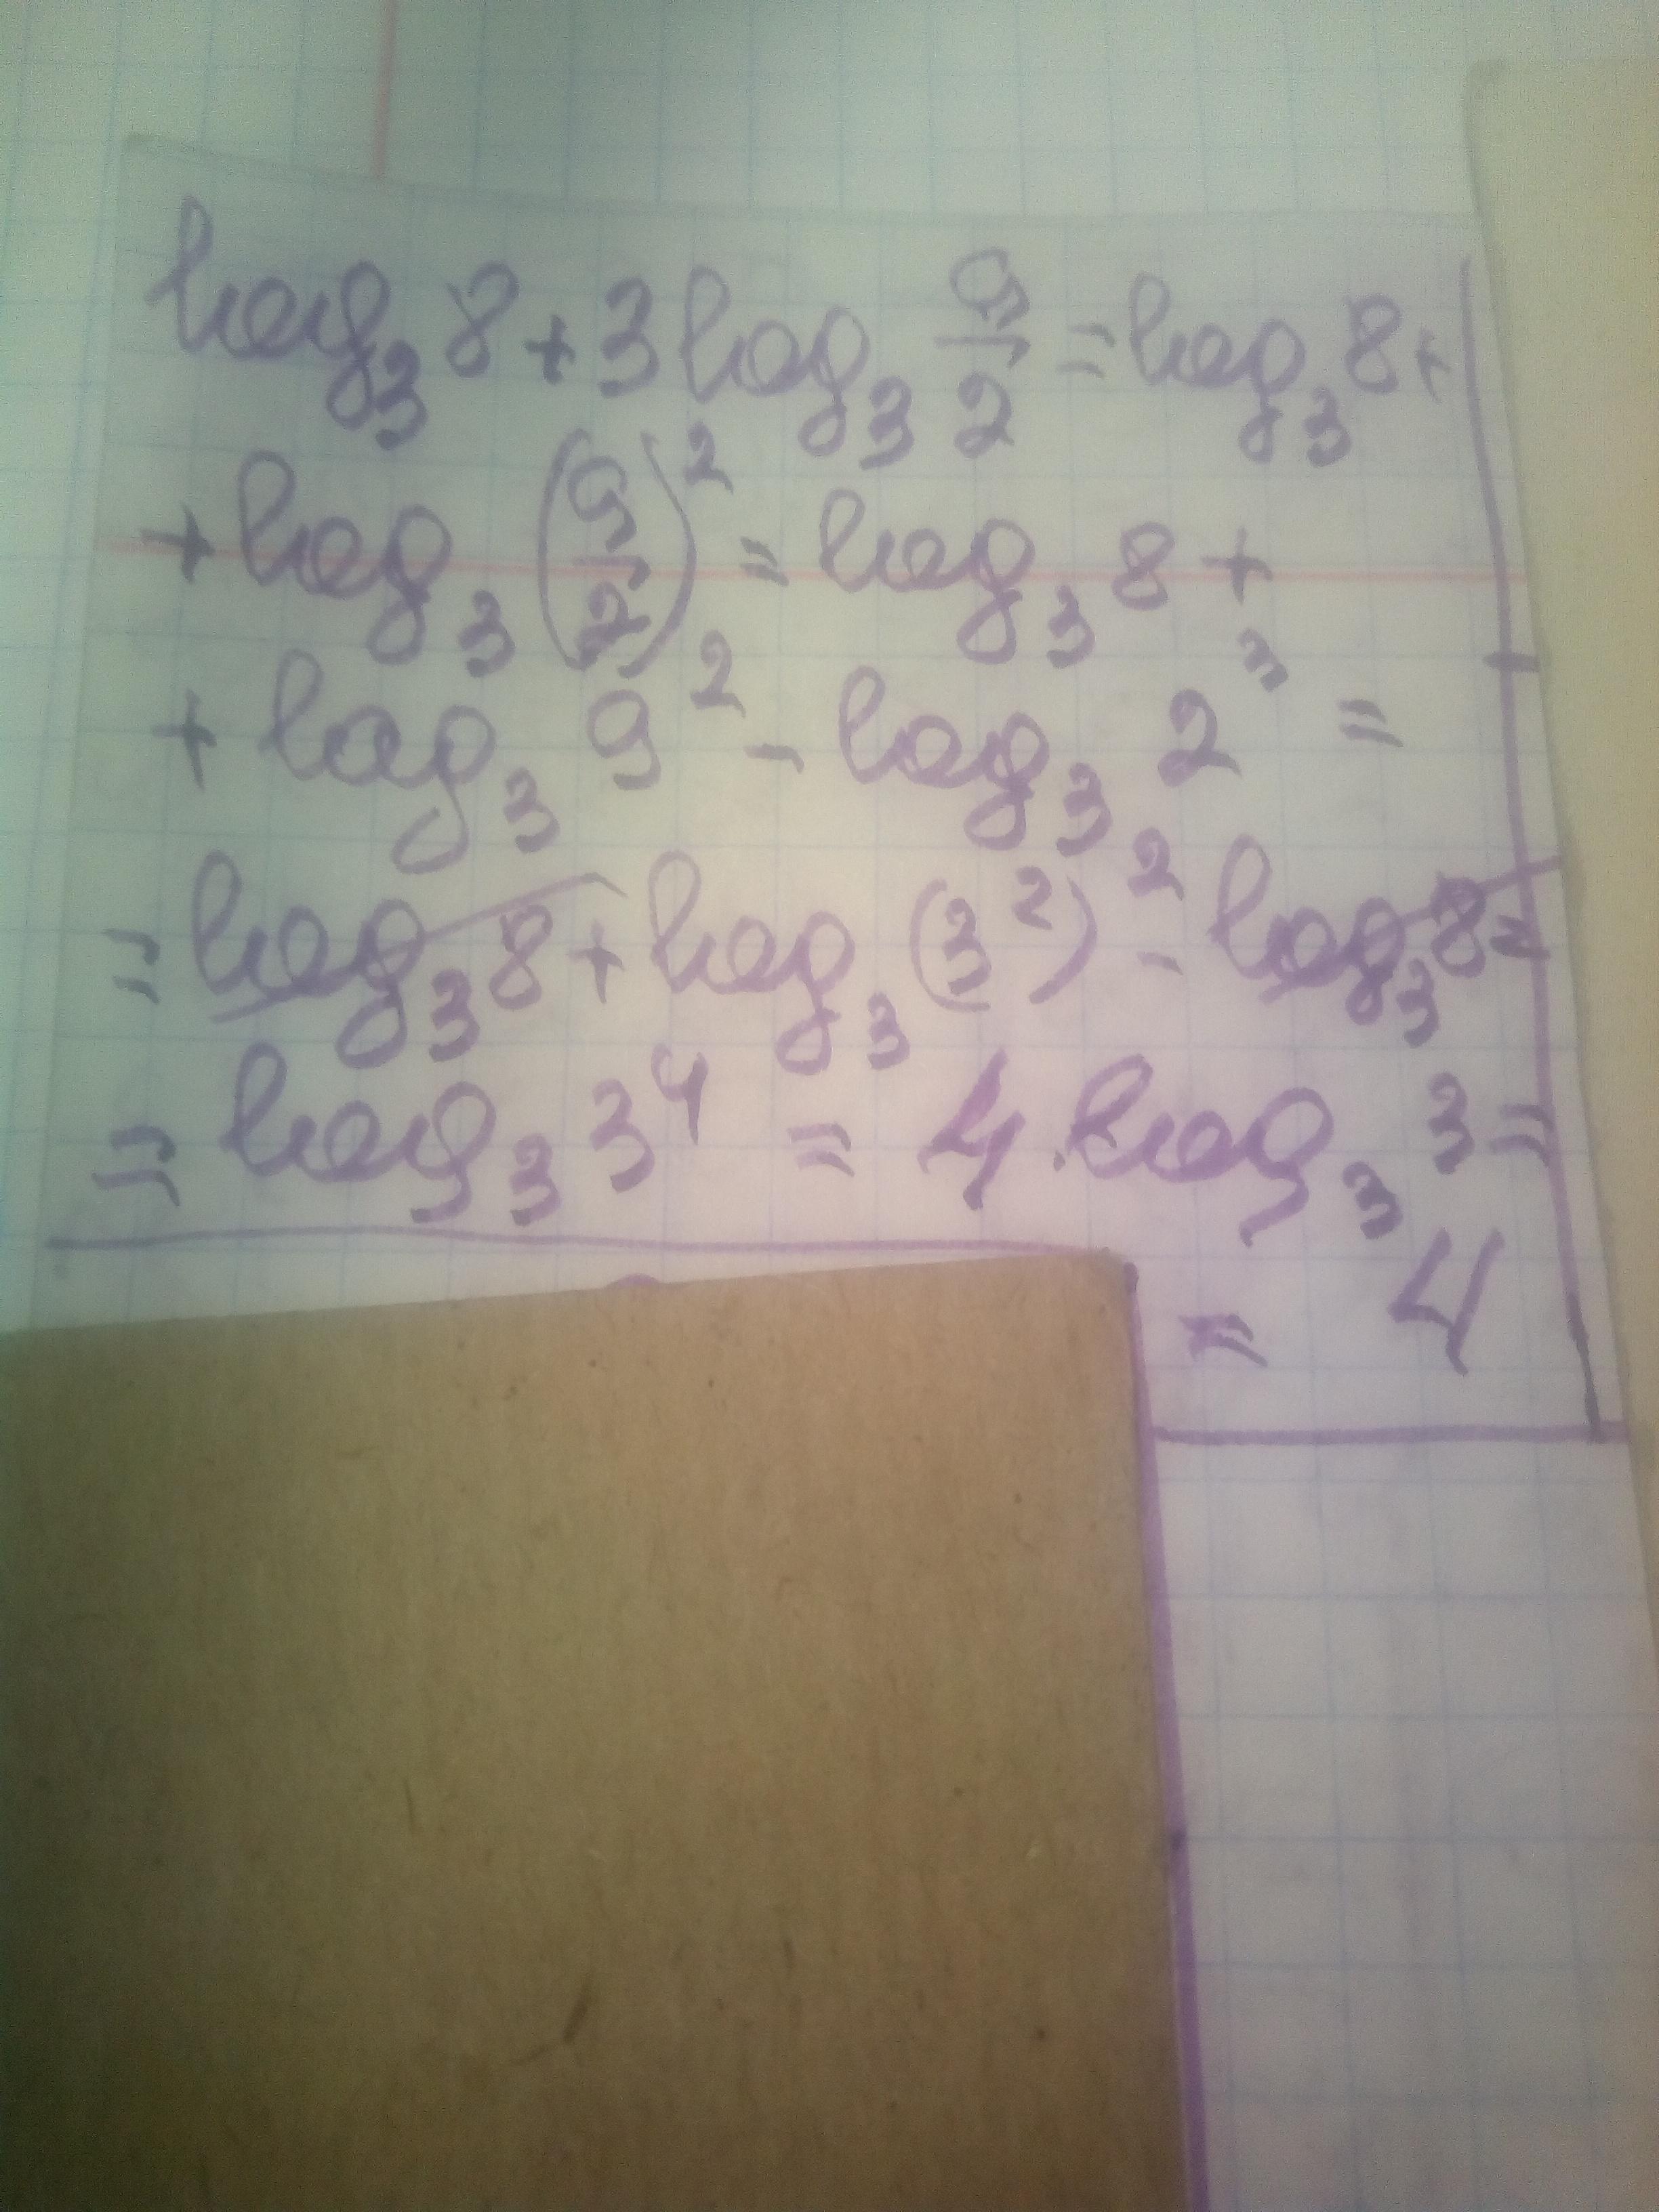 log₃ 8 + 3 log₃ 9/2 = log₃ 8 +
+ log₃ (9/2)² = log₃ 8 +
+ log₃ 9² - log₃ 2³ =
= log₃ 8 + log₃ (3²)² - log₃ 8 =
= log₃ 3⁴ = 4 · log₃ 3 =
= 4